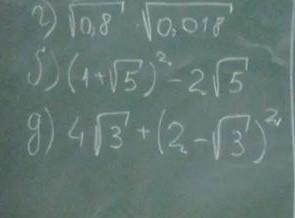 г) √0,8 · √0,018
б) (1+√5)² - 2√5
д) 4√3 + (2-√3)²